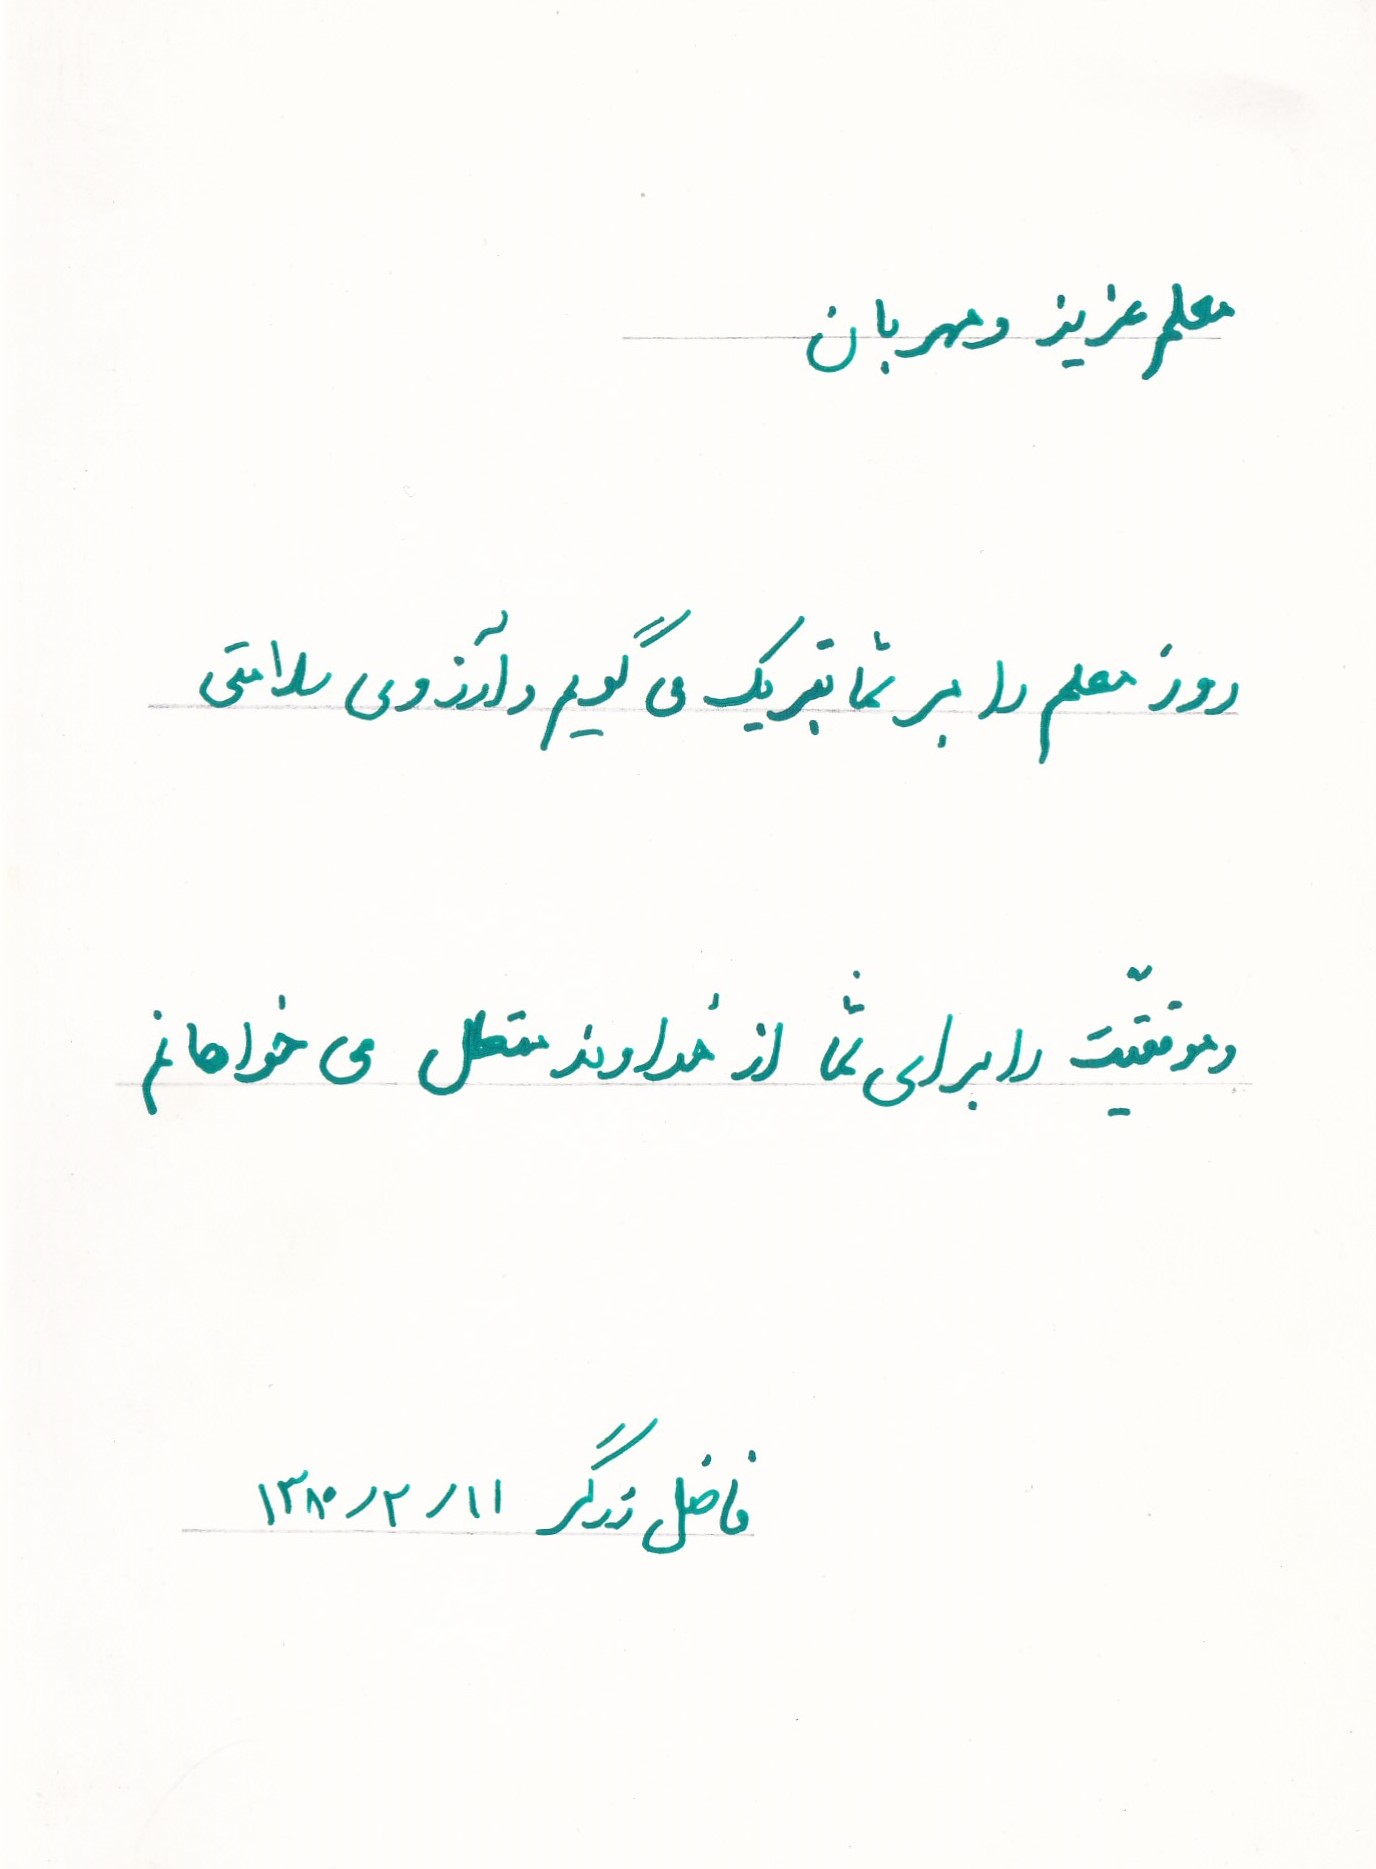 معلم عزیز و مهربان
روز معلم را بر شما تبریک می گویم و آرزوی سلامتی
و موفقیّت را برای شما از خداوند می خواهانم
فاضل زرگر ۱۳۸۰/۲/۱۱